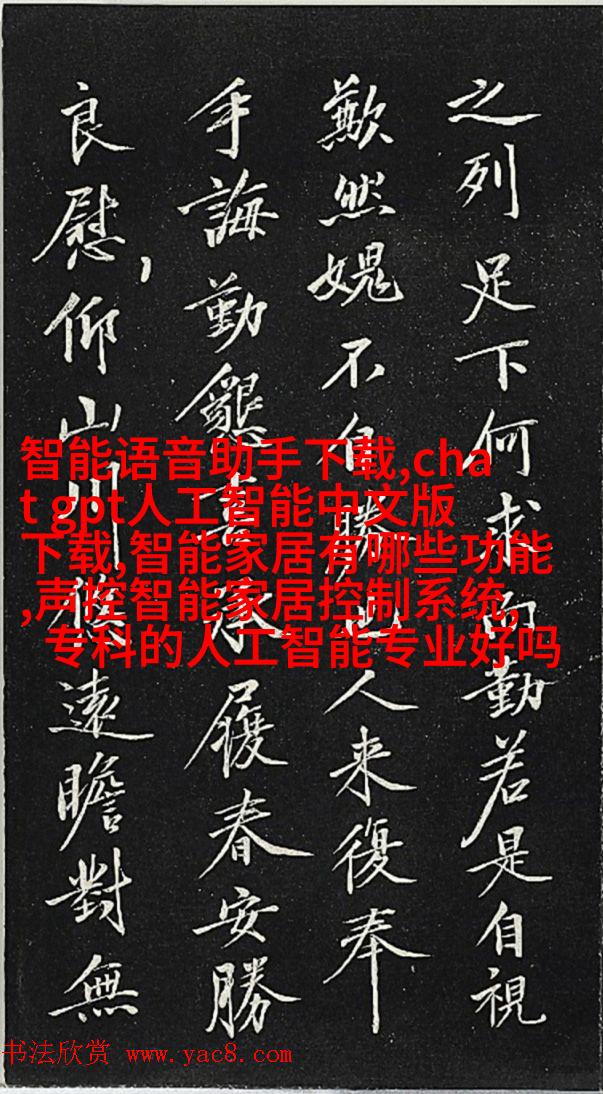 之列足下何求而勤若是自視
歉然媿不自勝也人来復奉
手誨勤懇承履春安勝
良慰,仰山川遠瞻對無
智能语音助手下载,cha
t gpt人工智能中文版
下载,智能家居有哪些功能
,声控智能家居控制系统,
专科的人工智能专业好吗
书法欣赏 www.yac8.com